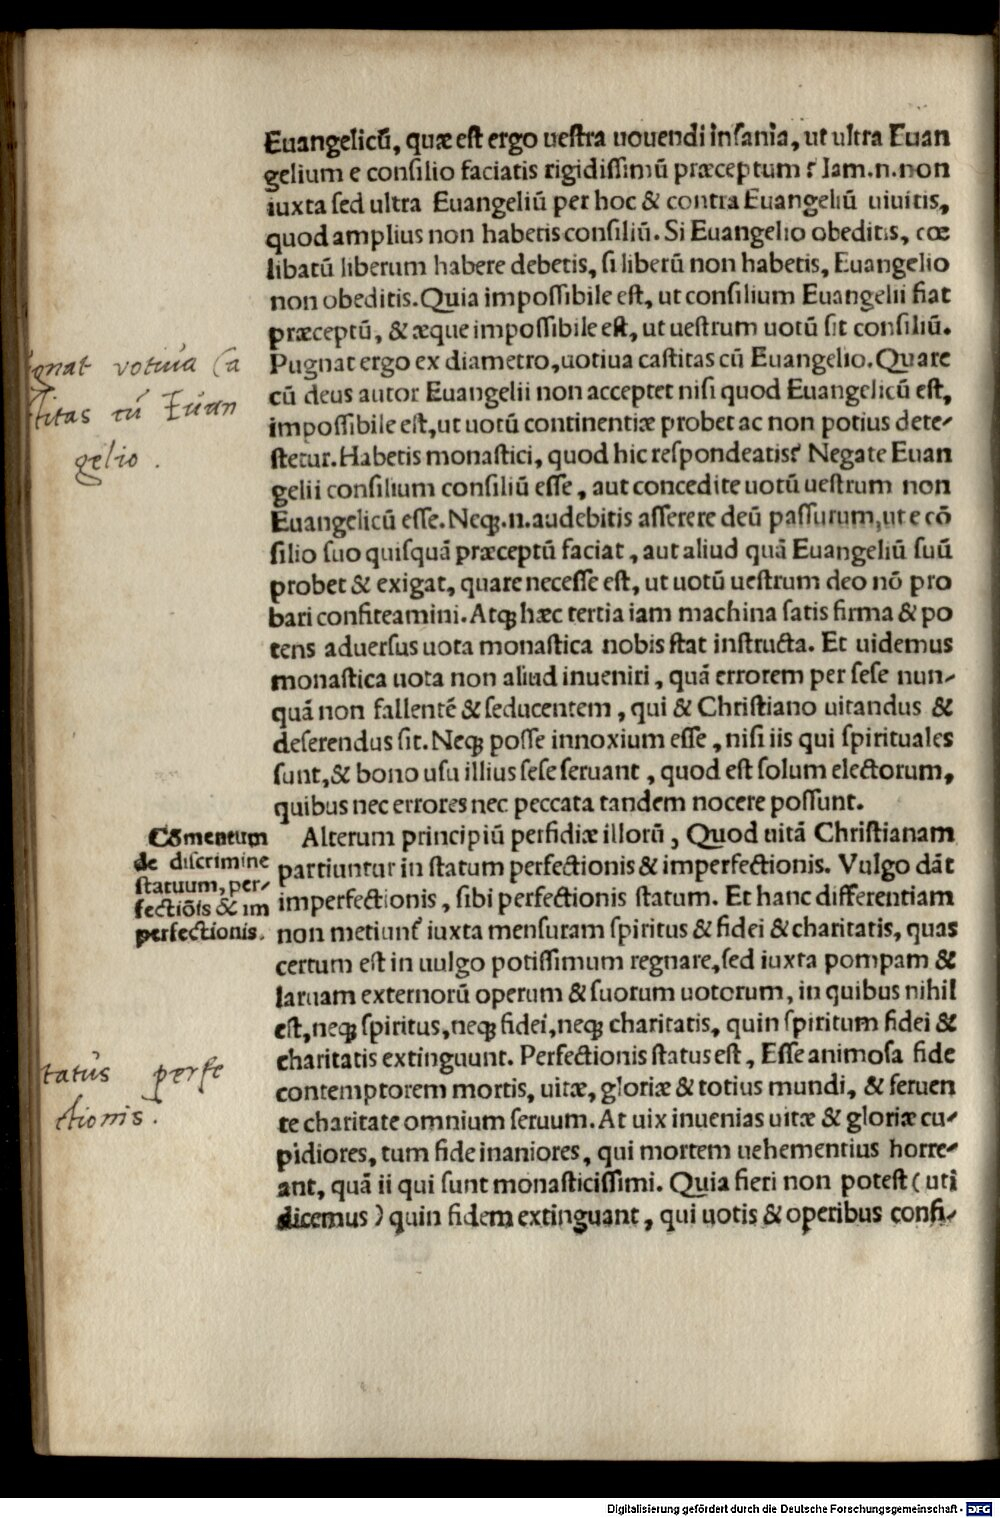 Euangelicū, quæ est ergo uestra uouendi insania, ut ultra Euan
gelium e consilio faciatis rigidissimū præceptum? Iam.n.non
iuxta sed ultra Euangeliū per hoc & contra Euangeliū uiuitis,
quod amplius non habetis consiliū. Si Euangelio obeditis, cœ
libatū liberum habere debetis, si liberū non habetis, Euangelio
non obeditis. Quia impossibile est, ut consilium Euangelii fiat
præceptū, & æque impossibile est, ut uestrum uotū sit consiliū.
Pugnat ergo ex diametro, uotiua castitas cū Euangelio. Quare
cū deus autor Euangelii non acceptet nisi quod Euangelicū est,
impossibile est, ut uotū continentiæ probet ac non potius dete-
stetur. Habetis monastici, quod hic respondeatis? Negate Euan
gelii consilium consiliū esse, aut concedite uotū uestrum non
Euangelicū esse. Neqꝫ.n.audebitis asserere deū passurum, ut e cō
silio suo quisquā præceptū faciat, aut aliud quā Euangeliū suū
probet & exigat, quare necesse est, ut uotū uestrum deo nō pro
bari confiteamini. Atqꝫ hæc tertia iam machina satis firma & po
tens aduersus uota monastica nobis stat instructa. Et uidemus
monastica uota non aliud inueniri, quā errorem per sese nun-
quā non fallentē & seducentem, qui & Christiano uitandus &
deserendus sit. Neqꝫ posse innoxium esse, nisi iis qui spirituales
sunt, & bono usu illius sese seruant, quod est solum electorum,
quibus nec errores nec peccata tandem nocere possunt.
Alterum principiū perfidiæ illorū, Quod uitā Christianam
partiuntur in statum perfectionis & imperfectionis. Vulgo dāt
imperfectionis, sibi perfectionis statum. Et hanc differentiam
non metiunt᷑ iuxta mensuram spiritus & fidei & charitatis, quas
certum est in uulgo potissimum regnare, sed iuxta pompam &
laruam externorū operum & suorum uotorum, in quibus nihil
est, neqꝫ spiritus, neqꝫ fidei, neqꝫ charitatis, quin spiritum fidei &
charitatis extinguunt. Perfectionis status est, Esse animosa fide
contemptorem mortis, uitæ, gloriæ & totius mundi, & feruen
te charitate omnium seruum. At uix inuenias uitæ & gloriæ cu-
pidiores, tum fide inaniores, qui mortem uehementius horre-
ant, quā ii qui sunt monasticissimi. Quia fieri non potest (uti
dicemus) quin fidem extinguant, qui uotis & operibus confi-
gnat votiua ca
titas cū Euan
gelio.
Cōmentum
de discrimine
statuum, per-
fectiōis & im
perfectionis.
tatus perfe
ctionis.
Digitalisierung gefördert durch die Deutsche Forschungsgemeinschaft - DFG